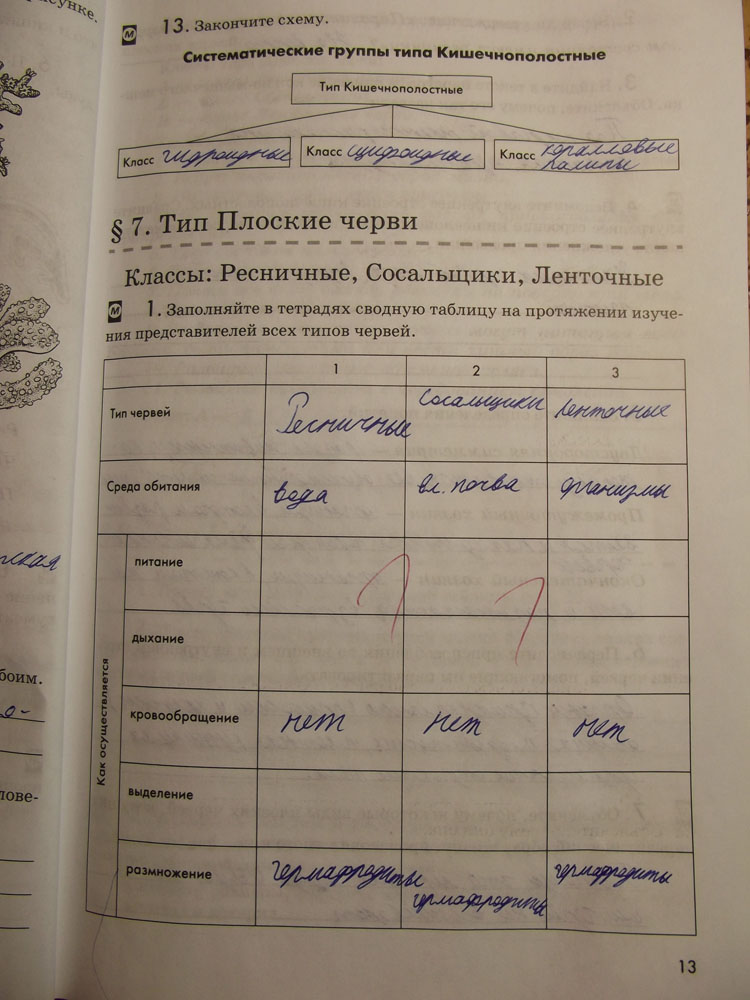 рисунке.
13. Закончите схему.
Систематические группы типа Кишечнополостные
Тип Кишечнополостные
Класс гидроидные
Класс сцифоидные
Класс коралловые
полипы
§ 7. Тип Плоские черви
Классы: Ресничные, Сосальщики, Ленточные
1. Заполняйте в тетрадях сводную таблицу на протяжении изуче-
ния представителей всех типов червей.
1 2 3
Тип червей Ресничные Сосальщики Ленточные
Среда обитания вода вл. почва организмы
Как осуществляется
питание
дыхание
кровообращение нет нет нет
выделение
размножение гермафродиты гермафродиты гермафродиты
обоим.
лове-
13